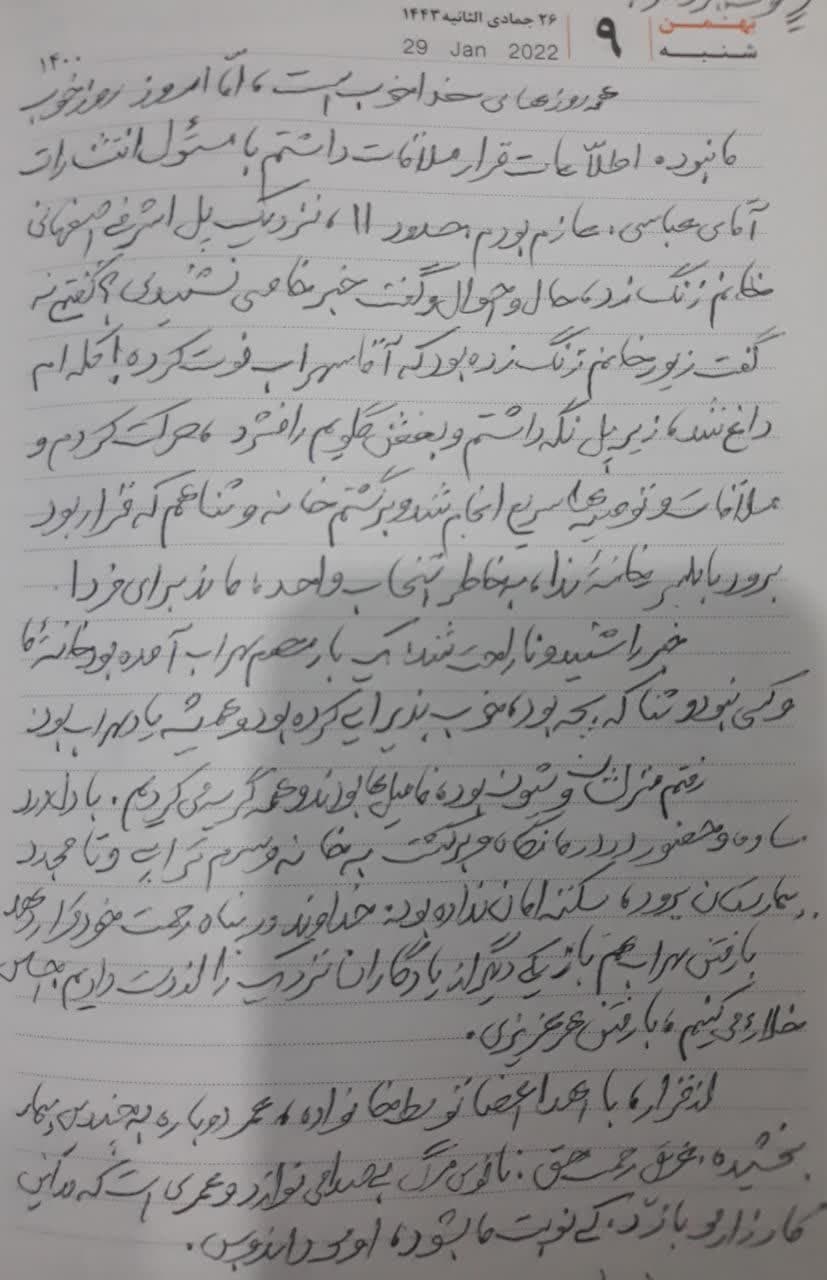 ۲۶ جمادی الثانیه ۱۴۴۳
29 Jan 2022
۹
بهمن
شنبه
۱۴۰۰
همه روزهای خدا خوب است، امّا امروز روز خوب
ما نبوده. قرار ملاقات داشتم با مسئول انتشارات
آقای عباسی. عازم بودم. حدود ۱۱، نزدیک پل اشرفی اصفهانی
خانم زنگ زد، حال و احوال و گفت خبر خاصی نشنیدی؟ گفتم نه
گفت زیور خانم زنگ زده بود که آقا سهراب فوت کرده! کله ام
داغ شد، زیر پل نگه داشتم و بغض گلویم را فشرد، حرکت کردم و
ملاقات و توصیه ها سریع انجام شد و برگشتم خانه و ثنا هم که قرار بود
برود با خانهٔ ندا، به خاطر انتخاب واحد، ماند برای فردا.
خبر را شنید و ناراحت شد. یک بار هم سهراب آمده بود خانهٔ ما
و کسی نبود و ثنا که بچه بود، خوب پذیرایی کرده بود و همیشه یاد سهراب بود
رفتم منزلشان و شیون بود، فامیل ها بودند و همه گریه کردیم. با دل درد
ساده و حضور در درمانگاه و برگشت به خانه و سرم تراپی و تا مجدد
بیمارستان برود، سکته امان نداده بود. خداوند در پناه رحمت خود قرار دهد
با رفتن سهراب هم باز یکی دیگر از یادگاران نزدیک را از دست دادیم. احساس
خلاء می کنیم، با رفتن هر عزیزی.
از قرار، با اهدا اعضا توسط خانواده، عمر دوباره به چندین بیمار
بخشیده. غریق رحمت حق. ناقوس مرگ بی صدا می نوازد و عمری است که در این
کارزار می بازد. کی نوبت ما بشود، او می داند و بس.